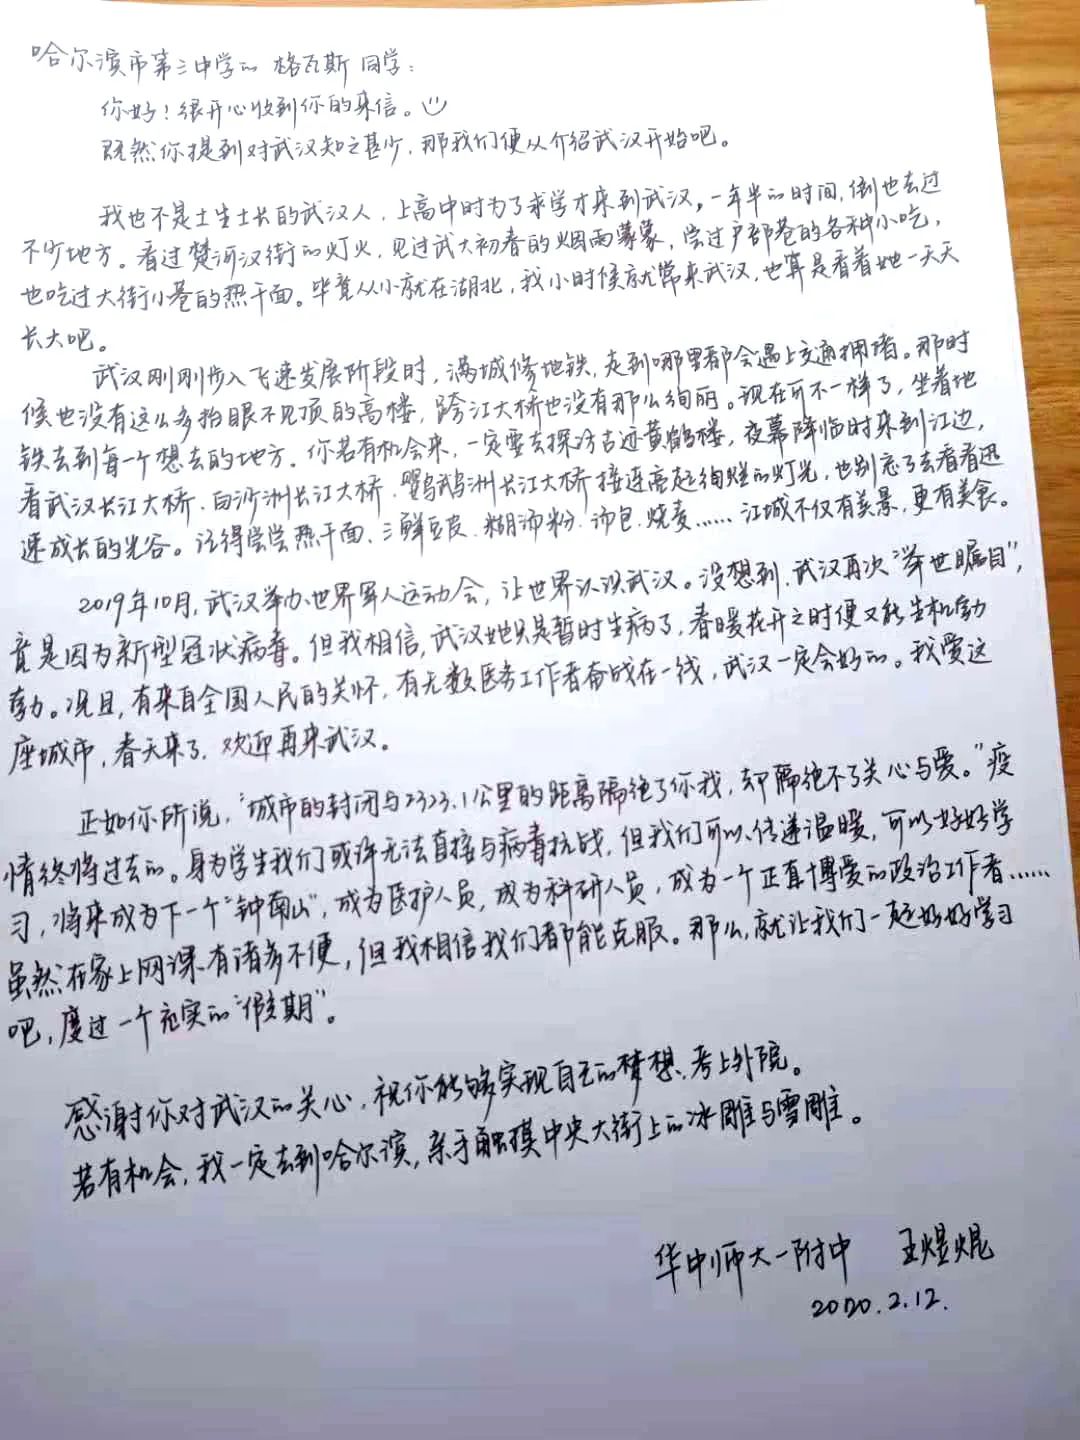 哈尔滨市第三中学的 格瓦斯 同学：
你好！很开心收到你的来信。
既然你提到对武汉知之甚少，那我们便从介绍武汉开始吧。
我也不是土生土长的武汉人，上高中时为了求学才来到武汉。一年半的时间，倒也去过
不少地方。看过楚河汉街的灯火，见过武大初春的烟雨蒙蒙，尝过户部巷的各种小吃，
也吃过大街小巷的热干面。毕竟从小就在湖北，我小时候就常来武汉，也算是看着她一天天
长大吧。
武汉刚刚步入飞速发展阶段时，满城修地铁，走到哪里都会遇上交通拥堵。那时
候也没有这么多抬眼不见顶的高楼，跨江大桥也没有那么绚丽。现在可不一样了，坐着地
铁去到每一个想去的地方。你若有机会来，一定要去探访古迹黄鹤楼，夜幕降临时来到江边，
看武汉长江大桥、白沙洲长江大桥、鹦鹉洲长江大桥接连亮起绚烂的灯光，也别忘了去看看迅
速成长的光谷。记得尝尝热干面、三鲜豆皮、糊汤粉、汤包、烧麦……江城不仅有美景，更有美食。
2019年10月，武汉举办世界军人运动会，让世界认识武汉。没想到，武汉再次“举世瞩目”，
竟是因为新型冠状病毒。但我相信，武汉她只是暂时生病了，春暖花开之时便又能生机勃
勃。况且，有来自全国人民的关怀，有无数医务工作者奋战在一线，武汉一定会好的。我爱这
座城市，春天来了，欢迎再来武汉。
正如你所说，“城市的封闭与2323.1公里的距离隔绝了你我，却隔绝不了关心与爱。”疫
情终将过去的。身为学生我们或许无法直接与病毒抗战，但我们可以传递温暖，可以好好学
习，将来成为下一个“钟南山”，成为医护人员，成为科研人员，成为一个正直博爱的政治工作者……
虽然在家上网课有诸多不便，但我相信我们都能克服。那么，就让我们一起好好学习
吧，度过一个充实的“假期”。
感谢你对武汉的关心，祝你能够实现自己的梦想，考上外院。
若有机会，我一定去到哈尔滨，亲手触摸中央大街上的冰雕与雪雕。
华中师大一附中 王煜焜
2020.2.12.